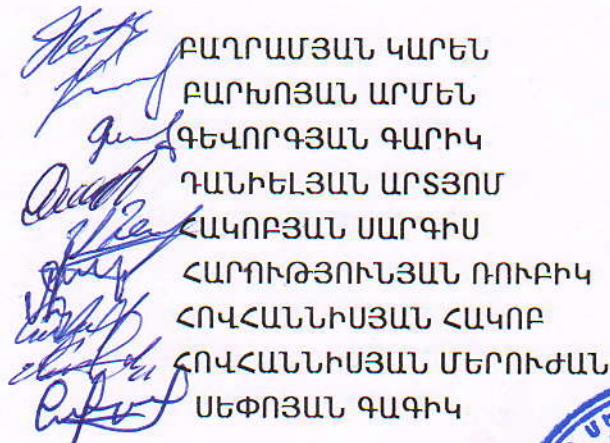 ԲԱՂՐԱՄՅԱՆ ԿԱՐԵՆ
ԲԱՐԽՈՅԱՆ ԱՐՄԵՆ
ԳԵՎՈՐԳՅԱՆ ԳԱՐԻԿ
ԴԱՆԻԵԼՅԱՆ ԱՐՏՅՈՄ
ՀԱԿՈԲՅԱՆ ՍԱՐԳԻՍ
ՀԱՐՈՒԹՅՈՒՆՅԱՆ ՌՈՒԲԻԿ
ՀՈՎՀԱՆՆԻՍՅԱՆ ՀԱԿՈԲ
ՀՈՎՀԱՆՆԻՍՅԱՆ ՄԵՐՈՒԺԱՆ
ՍԵՓՈՅԱՆ ԳԱԳԻԿ